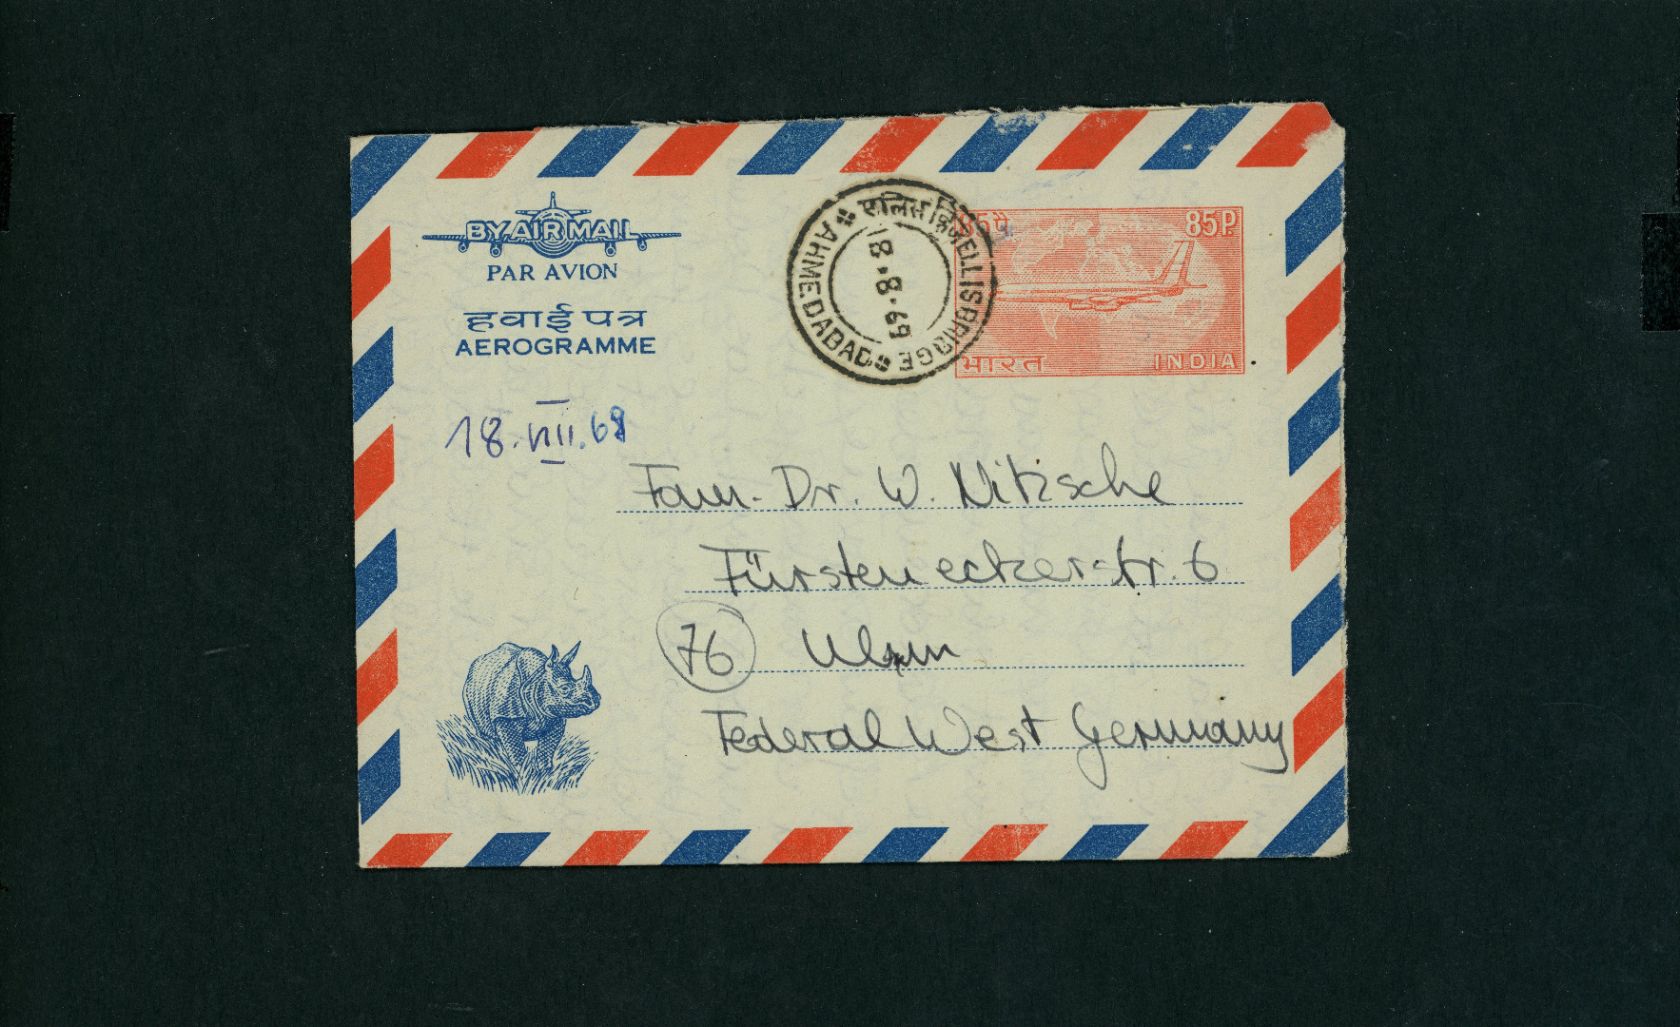 BY AIR MAIL
PAR AVION
हवाई पत्र
AEROGRAMME
एलिसब्रिज ELLISBRIDGE
AHMEDABAD
18.8.69
85पै 85P
भारत INDIA
18.VIII.69
Fam. Dr. W. Nitzsche
Fürsteneckerstr. 6
76 Ulm
Federal West Germany